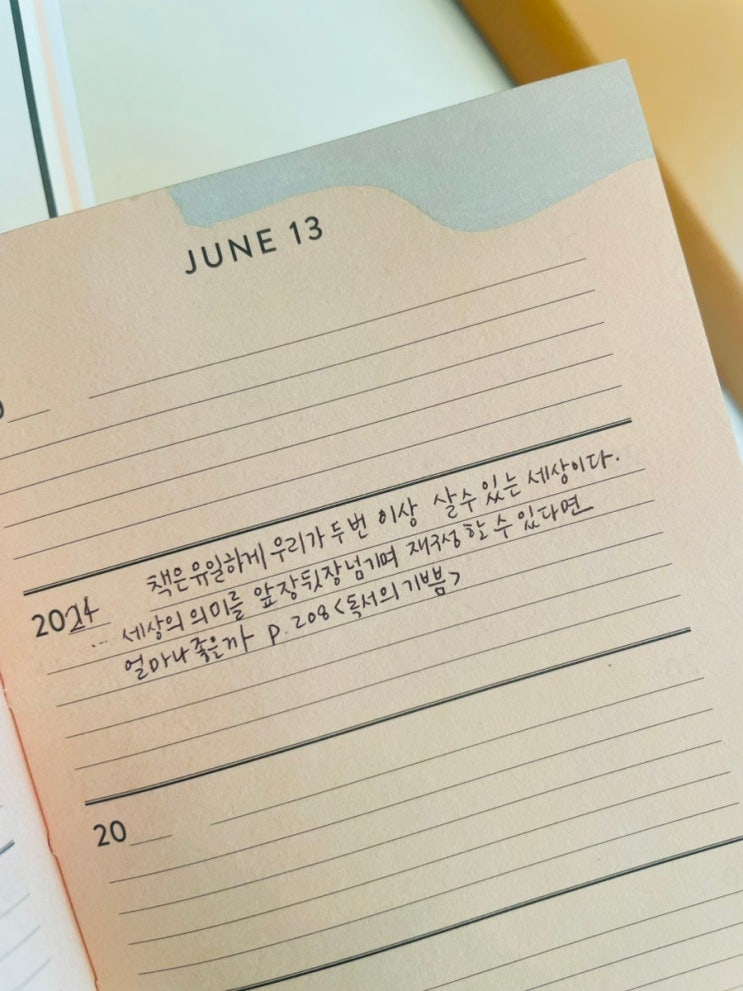 JUNE 13
책은 유일하게 우리가 두번 이상 살수 있는 세상이다.
2024
... 세상의 의미를 앞장뒷장 넘기며 재구성할 수 있다면
얼마나 좋은가 p.208 <독서의 기쁨>
20